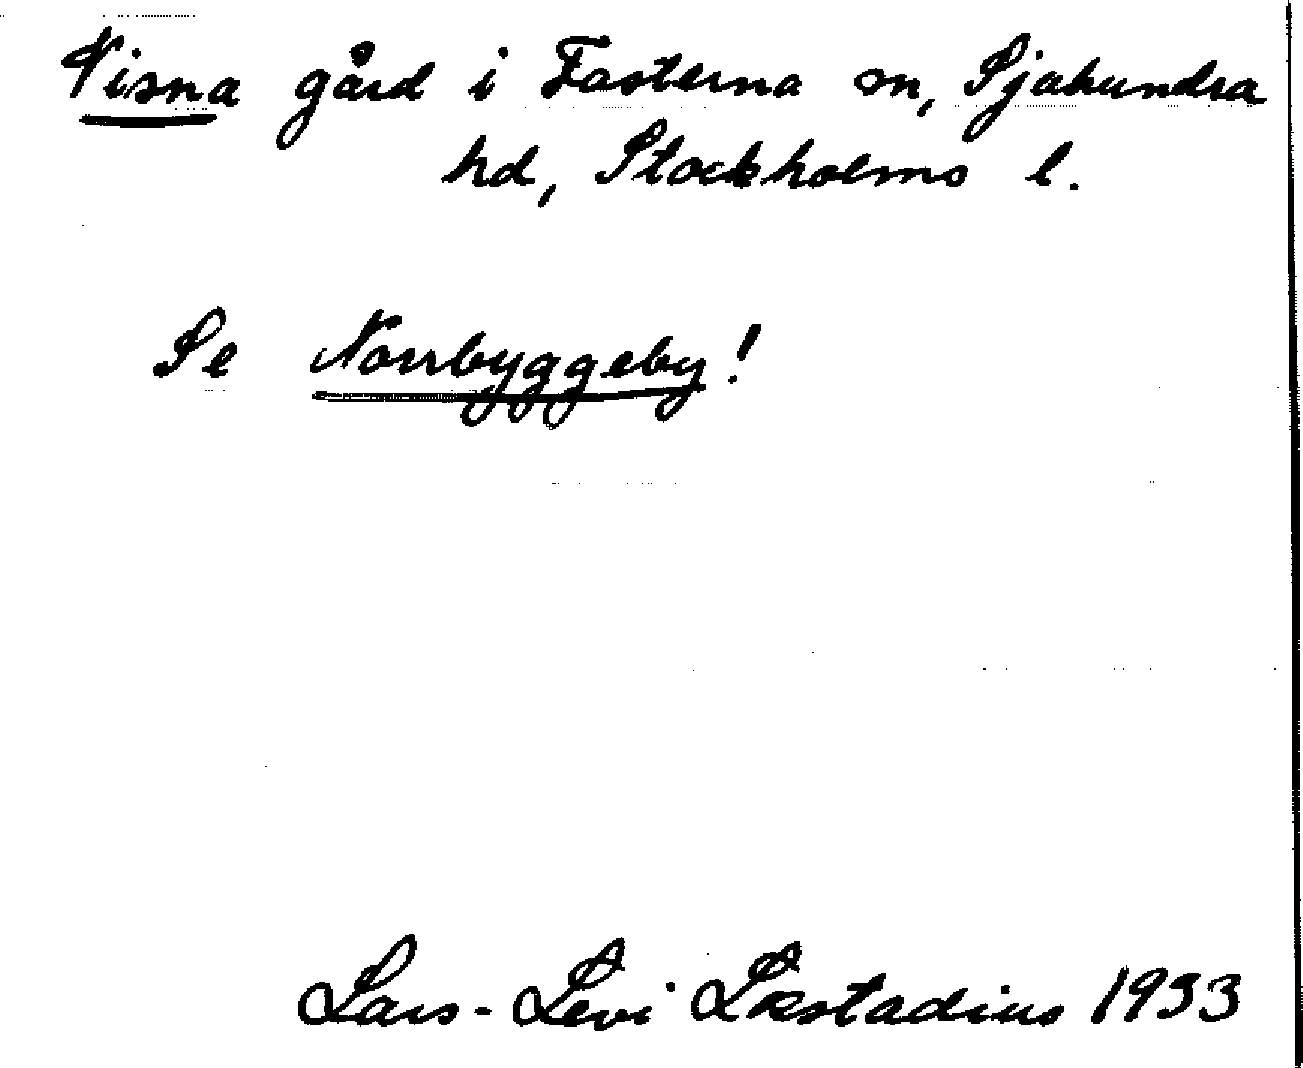 Visna gård i Fasterna sn, Sjuhundra
hd, Stockholms l.
Se Norrbyggeby!
Lars-Levi Læstadius 1933